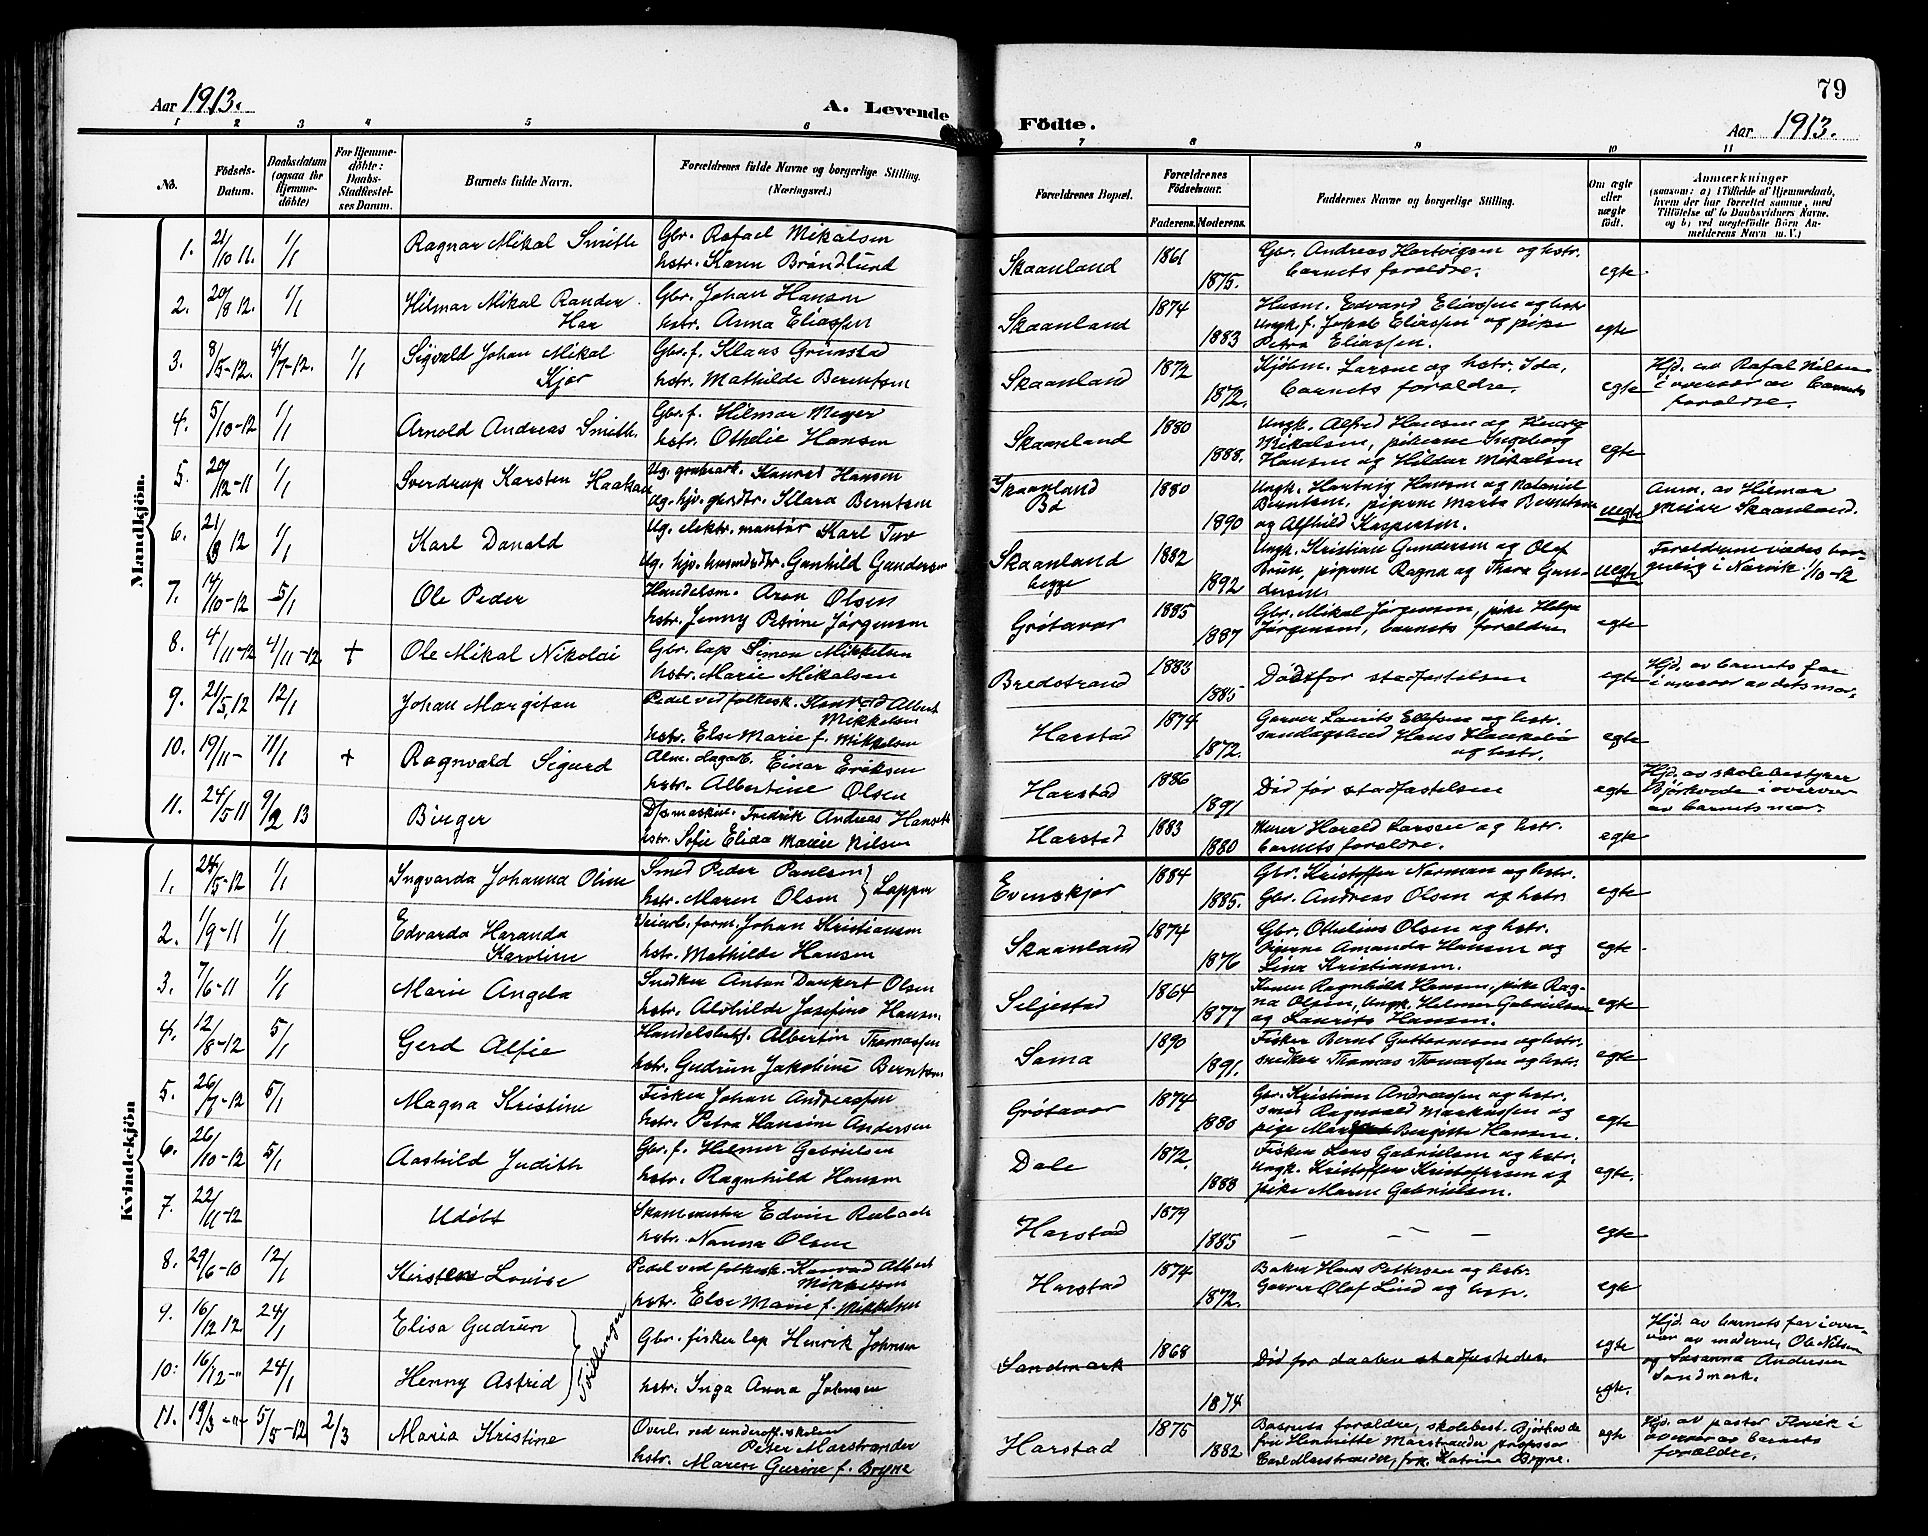 79
Aar 1913.
A. Levende Födte.
Aar 1913.
1 2 3 4 5 6 7 8 9 10 11
No.
Födsels-
Datum.
Daabsdatum
(ogsaa for
Hjemme-
döbte)
For Hjemme-
döbte:
Daabs-
Stadfæstel-
ses Datum.
Barnets fulde Navn.
Forældrenes fulde Navne og borgerlige Stilling.
(Næringsvei.)
Forældrenes Bopæl.
Forældrenes
Födselsaar.
Faderens. Moderens.
Faddernes Navne og borgerlige Stilling.
Om ægte
eller
uægte
födt.
Anmærkninger
(saasom: a) i Tilfælde af Hjemmedaab,
hvem der har forrettet samme, med
Tilföielse af to Daabsvidners Navne,
og b) ved uægtefödte Börn An-
melderens Navn m. V.)
Mandkjön.
1. 21/10 11. 1/1 Ragnar Mikal Smith Gbr. Rafael Mikalsen
hstr. Karen Brøndlund
Skaanland 1861 1875. Gbr. Andreas Hartvigsen og hstr.
barnets foraldre. egte
2. 20/8 12. 1/1 Hilmar Mikal Rander
Haa
Gbr. Johan Hansen
hstr. Anna Eliassen
Skaanland 1874 1883 Husm. Edvard Eliassen og hstr
Ungk. f. Jakob Eliassen og pike
Petra Eliassen. egte
3. 8/5-12. 4/7-12. 1/1 Sigvald Johan Mikal
Kjær
Gbr. f. Klaus Grimstad
hstr. Mathilde Berntsen
Skaanland 1872 1872. Kjøbm. Larsen og hstr. Ida,
barnets foraldre. egte
Hjd. av Rafal Nilsen
i overvær av barnets
foraldre.
4. 5/10-12 1/1 Arnold Andreas Smith. Gbr. f. Hilmar Meyer
hstr. Othelie Hansen
Skaanland 1880 1888. Ungk. Alfred Hansen og
Mikalsen, pikerne Ingeborg
Hansen og Hildur Mikalsen egte
5. 20/12-11 1/1 Sverdrup Karsten Haakon Ug. grubearb. Konrad Hansen
ug. hjv. gbrdtr. Klara Berntsen
Skaanland
Bö
1880 1890 Ungk. Hartvig Hansen og
Berntsen, pigerne Marta Berntsen
og Alfhild Kaspersen. uegte
Anm. av Hilmar
Meier Skaanland.
6. 21/8 12 1/1 Karl Donald Ug. elektr. mantør Karl Tuv
Ug. hjv. husmdsdtr. Gunhild Gundersen
Skaanland
begge
1882 1892 Ungk. Kristian Gundersen og Olaf
Bruun, pigerne Ragna og Thora Gun-
dersen. uegte
Foraldrene viedes bor-
gerlig i Narvik 1/10-12
7. 14/10-12 5/1 Ole Peder Handelsm. Aron Olsen
hstr. Jenny Petrine Jørgensen
Grøtavær 1885 1887 Gbr. Mikal Jørgensen, pike Helga
Jørgensen, barnets foraldre egte
8. 4/11-12 4/11-12 + Ole Mikal Nikolai Gbr. lap Simon Mikkelsen
hstr. Marie Mikalsen
Bredstrand 1883 1885 Död for stadfæstelsen egte
Hjd. av barnets far
i overvær av dets mor.
9. 21/5, 12 12/1 Johan Margiton Pedel ved folkesk. Konrad Albert
Mikkelsen
hstr. Else Marie f. Mikkelsen
Harstad 1874 1872. Garver Laurits Ellefsen og hstr.
sandagsbud Hans
og hstr. egte
10. 19/11- 11/1 + Ragnvald Sigurd Alm. dagarb. Einar Eriksen
hstr. Albertine Olsen
Harstad 1886 1891 Död før stadfastelsen egte
Hjd. av skolebestyrer
Björkvede i overvær
av barnets mor.
11. 24/5 11 9/2 13 Birger D/s maskin. Fredrik Andreas Hansen
hstr. Sofie Elida Marie Nilsen
Harstad 1883 1880 Murer Harald Larsen og hstr.
barnets foraldre. egte
Kvindekjön
1. 24/5-12 1/1 Ingvarda Johanna Oline Smed Peder Paulsen
hstr. Maren Olsen } Lapper
Evenskjær 1884 1885. Gbr. Kristoffer Norman og hstr.
Gbr. Andreas Olsen og hstr. egte
2. 1/9-11 1/1 Edvarda Haranda
Karoline
Veiarb. form. Johan Kristiansen
hstr. Mathilde Hansen
Skaanland 1874 1876 Gbr. Ottelius Olsen og hstr.
Pigerne Amanda Hansen og
Lina Kristiansen. egte
3. 7/6-11 1/1 Marie Angela Snedker Anton Dankert Olsen
hstr. Alvhilde Josefine Hansen
Seljestad 1864 1877 Konen Ragnhild Hansen, pike Rag-
na Olsen, Ungk. Helmer Gabrielsen
og Laurits Hansen. egte
4. 12/8-12 5/1 Gerd Alfie Handelsbetj. Albertin Thomassen
hstr. Gudrun Jakobine Berntsen
Sama 1890 1891. Fisker Bernt Guttormsen og hstr.
snedker Thomas Thomassen og hstr. egte
5. 26/7-12 5/1 Magna Kristine Fisker Johan Andreassen
hstr. Petra Hansine Andersen
Grøtavær 1874 1880 Gbr. Kristian Andreassen og hstr.
smed Ragnvald Markussen og
pige Birgitte Hansen. egte
6. 26/10-12 5/1 Aashild Judith Gbr. f. Helmer Gabrielsen
hstr. Ragnhild Hansen
Dale 1872. 1888 Fisker Lars Gabrielsen og hstr.
Ungk. Kristoffer Kristoffersen og
pike Maren Gabrielsen. egte.
7. 22/11-12 Udöbt Edvin
hstr. Nanna Olsen
Harstad 1879 1885 – – – egte
8. 29/6-10 12/1 Kirsten Lovise Pedel ved folkesk. Konrad Albert
Mikkelsen
hstr. Else Marie f. Mikkelsen
Harstad 1874 1872. Baker Hans Pettersen og hstr.
Garver Olaf Lind og hstr. egte
9. 16/12 12 24/1 Elisa Gudrun
10. 16/12-" 24/1 Henny Astrid
} Tvillinger
Gbr. fisker lap Henrik Johnsen
hstr. Inga Anna Johnsen
Sandmark 1868 1874 Död før daaben stadfæstedes. egte
egte.
Hjd. av barnets far i over-
vær av moderen, Ole Nilsen
og Susanna Andersen
Sandmark.
11. 19/3-"- 5/5-12 2/3 Maria Kristine Overl. ved underoff. skolen
Peter Marstrander
hstr. Maren Gurine f. Bryne
Harstad 1875 1882 Barnets foraldre, skolebest. Björkvede
fru Henriette Marstrander, professor
Carl Marstrander, frk. Katrine Bryne. egte
Hjd. av pastor Flovik i
overvær av barnets
forældre.